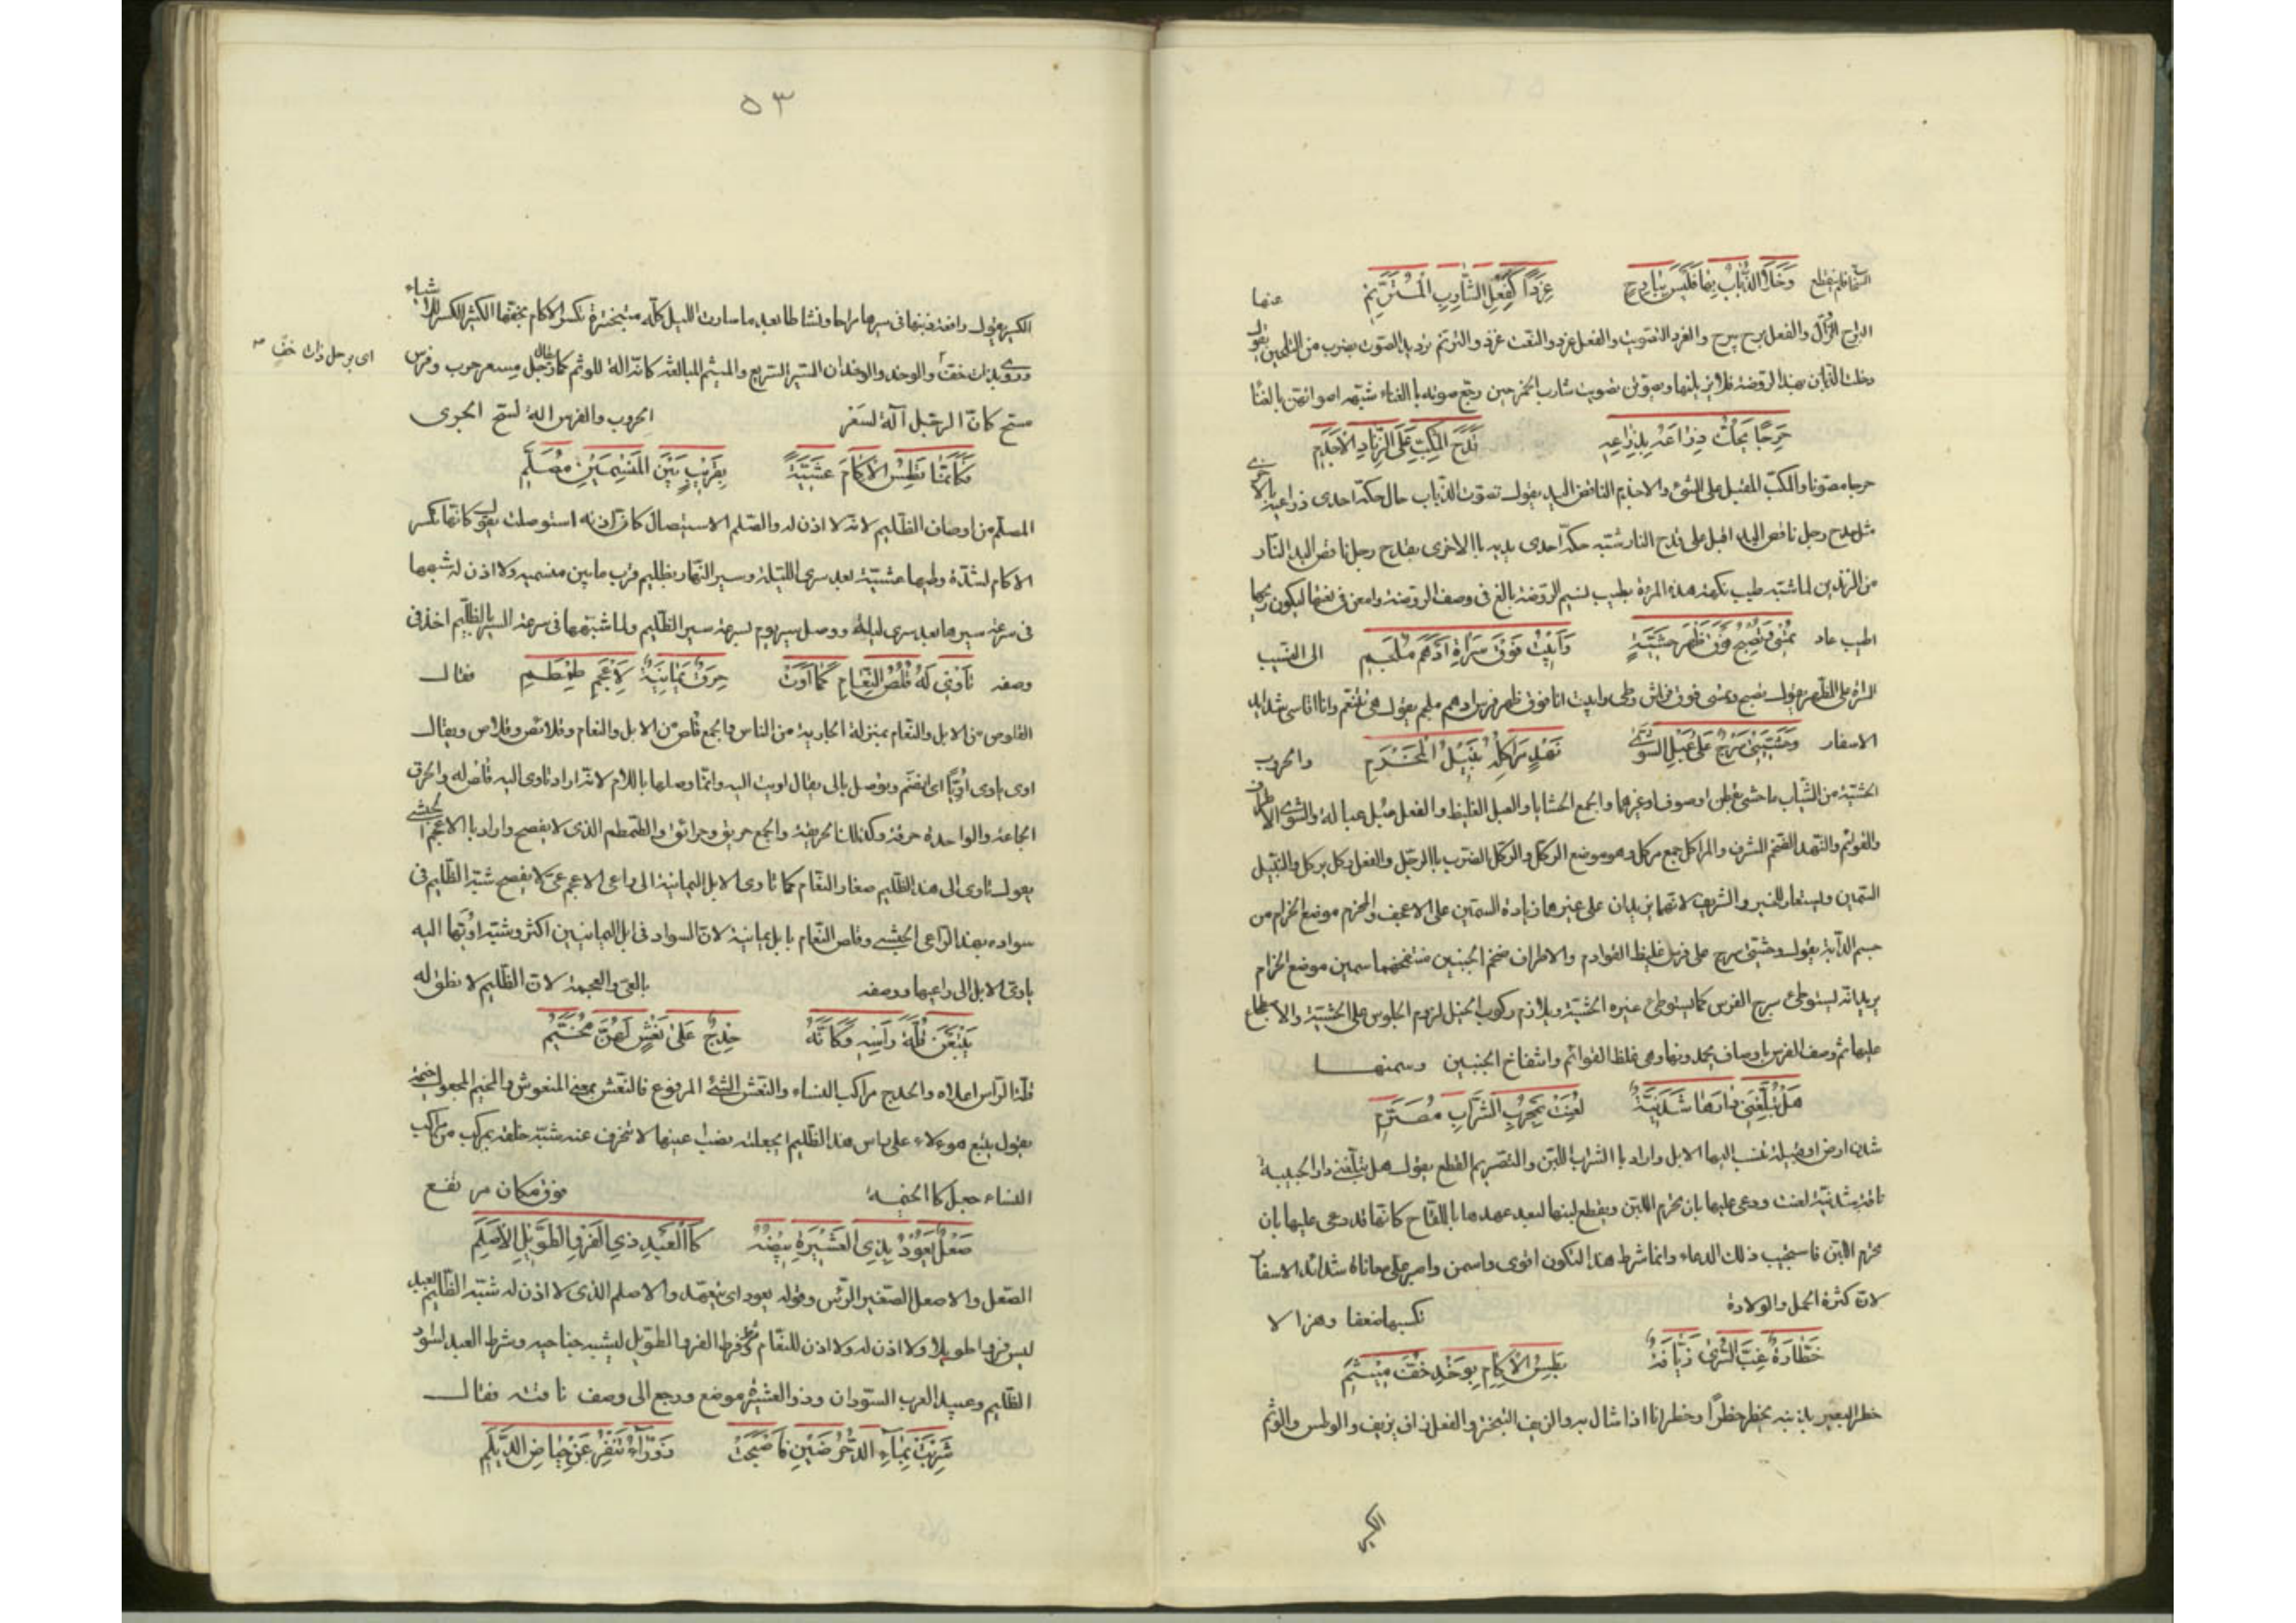 السماء فلم ينقطع وَخَلَا الذُّبَابُ بِهَا فَلَيْسَ بِبَارِحٍ غَرِدًا كَفِعْلِ الشَّارِبِ الْمُتَرَنِّمِ عنها
البراح الزوال والفعل برح يبرح والغرد التصويت والفعل غرد والنعت غرد والترنم ترديد الصوت بضرب من التلحين يقول
وخلت الذبان بهذه الروضة فلا يزايلنها ويصوتن تصويت شارب الخمر حين رجع صوته باالغناء شبه اصواتهن بالغنا
هَزِجًا يَحُكُّ ذِرَاعَهُ بِذِرَاعِهِ قَدْحَ الْمُكِبِّ عَلَى الزِّنَادِ الْأَجْذَمِ
هزجا مصوتا والمكب المقبل على الشئ والاجذم الناقص اليد يقول تصوت الذباب حال حكه احدى ذراعيه باالاخرى
مثل قدح رجل ناقص اليد اقبل على قدح النار شبه حكه احدى يديه باالاخرى بقدح رجل ناقص اليد النار
من الزندين لما شبه طيب نكهة هذه المرءة بطيب نسيم الروضة بالغ فى وصف الروضة وامعن فى نعتها ليكون ريحها
اطيب عاد تُمْسِي وَتُصْبِحُ فَوْقَ ظَهْرِ حَشِيَّةٍ وَأَبِيتُ فَوْقَ سَرَاةِ أَدْهَمَ مُلْجَمِ الى النسيب
السراة على الظهر يقول تصبح وتمسى فوق فراش وطى وابيت انا فوق ظهر فرس ادهم ملجم يقول هى تتنعم وانا اقاسى شدايد
الاسفار وَحَشِيَّتِي سَرْجٌ عَلَى عَبْلِ الشَّوَى نَهْدٍ مَرَاكِلُهُ نَبِيلِ الْمَحْزِمِ والحروب
الحشية من الثياب ما حشى بقطن او صوف او غيرهما والجمع الحشايا والعبل الغليظ والفعل عبل عبالة والشوى الاطراف
والقوائم والنهد الضخم المشرف والمراكل جمع مركل وهو موضع الركل والركل الضرب باالرجل والفعل ركل يركل والنبيل
السمين ويستعار للخير والشريف لانهما يزيدان على غيرهما زيادة السمين على الاعجف والمحزم موضع الحزام من
جسم الدابة يقول وحشيتى سرج على فرس غليظ القوائم والاطراف ضخم الجنبين منتفخهما سمين موضع الحزام
يريد انه يستوطئ سرج الفرس كما يستوطئ غيره الحشية ويلازم ركوب الخيل لزوم الجلوس على الحشية والاضطجاع
عليها ثم وصف الفرس باوصاف يحمدونها وهى غلظ القوائم وانتفاخ الجنبين وسمنهما
هَلْ تُبْلِغَنِّي دَارَهَا شَدَنِيَّةٌ لُعِنَتْ بِمَحْرُومِ الشَّرَابِ مُصَرَّمِ
شدن ارض او قبيلة تنسب اليها الابل واراد باالشراب اللبن والتصريم القطع يقول هل تبلغنى دار الحبيبة
ناقة شدنية لعنت ودعى عليها بان يحرم اللبن ويقطع لبنها لبعد عهدها باللقاح كانها قد دعى عليها بان
يحرم اللبن فاستجيب ذلك الدعاء وانما شرط هذا لتكون اقوى واسمن واصبر على معاناة شدائد الاسفار
لان كثرة الحمل والولادة تكسبها ضعفا وهزالا
خَطَّارَةٌ غِبَّ السُّرَى زَيَّافَةٌ تَطِسُ الْإِكَامَ بِوَخْدِ خُفٍّ مِيثَمِ
خطر البعير بذنبه يخطر خطرا وخطرانا اذا شال به والزيف التبختر والفعل زاف يزيف والوطس والوثم
الكسر
٥٣
الكسر يقول رافعة ذنبها فى سيرها مراحا ونشاطا بعد ما سارت الليل كله متبخترة تكسر الاكام بخفها الكثير الكسر للاشياء
وروى بذات خف والوخد والوخدان السير السريع والميثم للمبالغة كانه الة للوثم كما يقال رجل مسعر حرب وفرس
اى برجل ذات خف صح
مسح كان الرجل آلة لسعر الحروب والفرس الة لسح الجرى
فَكَأَنَّمَا تَطِسُ الْإِكَامَ عَشِيَّةً بِقَرِيبِ بَيْنَ الْمَنْسِمَيْنِ مُصَلَّمِ
المصلم من اوصاف الظليم لانه لا اذن له والصلم الاستيصال كان اذنه استوصلت يقول كانها تكسر
الاكام لشدة وطيها عشية بعد سرى الليلة وسير النهار بظليم قرب ما بين منسميه ولا اذن له شبهها
فى سرعة سيرها بعد سرى ليلة ووصل سير يوم بسرعة سير الظليم ولما شبهها فى سرعة السير باالظليم اخذ فى
وصفه تَأْوِي لَهُ قُلُصُ النَّعَامِ كَمَا أَوَتْ حِزَقٌ يَمَانِيَةٌ لِأَعْجَمَ طِمْطِمِ فقال
القلوص من الابل والنعام بمنزلة الجارية من الناس والجمع قلص من الابل والنعام وقلائص وقلاص ويقال
اوى ياوى اويا اى انضم ويوصل بالى يقال اويت اليه وانما وصلها باللام لانه اراد تاوى اليه قلص له والحزق
الجماعة والواحدة حزقة وكذلك الحزيقة والجمع حزيق وحزائق والطمطم الذى لا يفصح واراد باالاعجم الحبشى
يقول تاوى الى هذا الظليم صغار النعام كما تاوى الابل اليمانية الى راعى الاعجم عى لا يفصح شبه الظليم فى
سواده بهذا الراعى الحبشى وقلص النعام بابل يمانية لان السواد فى ابل اليمانيين اكثر وشبه اويها اليه
باوى الابل الى راعيها ووصفه بالعى والعجمة لان الظليم لا نطق له
يَتْبَعْنَ قُلَّةَ رَأْسِهِ وَكَأَنَّهُ حِدْجٌ عَلَى نَعْشٍ لَهُنَّ مُخَيَّمِ
قلة الرأس اعلاه والحدج مراكب النساء والنعش الشئ المرفوع فالنعش بمعنى المنعوش والمخيم المجعول خيمة
يقول يتبع هوءلاء على راس هذا الظليم اى جعلته نصب عينها لا تنحرف عنه شبه خلقه بمركب من مراكب
النساء جعل كاالخيمة فوق مكان مرتفع
صَعْلٍ يَعُودُ بِذِي الْعُشَيْرَةِ بَيْضَهُ كَاالْعَبْدِ ذِي الْفَرْوِ الطَّوِيلِ الْأَصْلَمِ
الصعل والاصعل الصغير الرئس وقوله يعود اى يتعهد والاصلم الذى لا اذن له شبه الظليم العبد
لبس فروا طويلا ولا اذن له ولا اذن للنعام وشرط الفرو الطويل ليشبه جناحيه وشرط العبد لسود
الظليم وعبيد العرب السودان وذو العشيرة موضع ورجع الى وصف ناقته فقال
شَرِبَتْ بِمَاءِ الدُّحْرُضَيْنِ فَأَصْبَحَتْ زَوْرَآءَ تَنْفِرُ عَنْ حِيَاضِ الدَّيْلَمِ